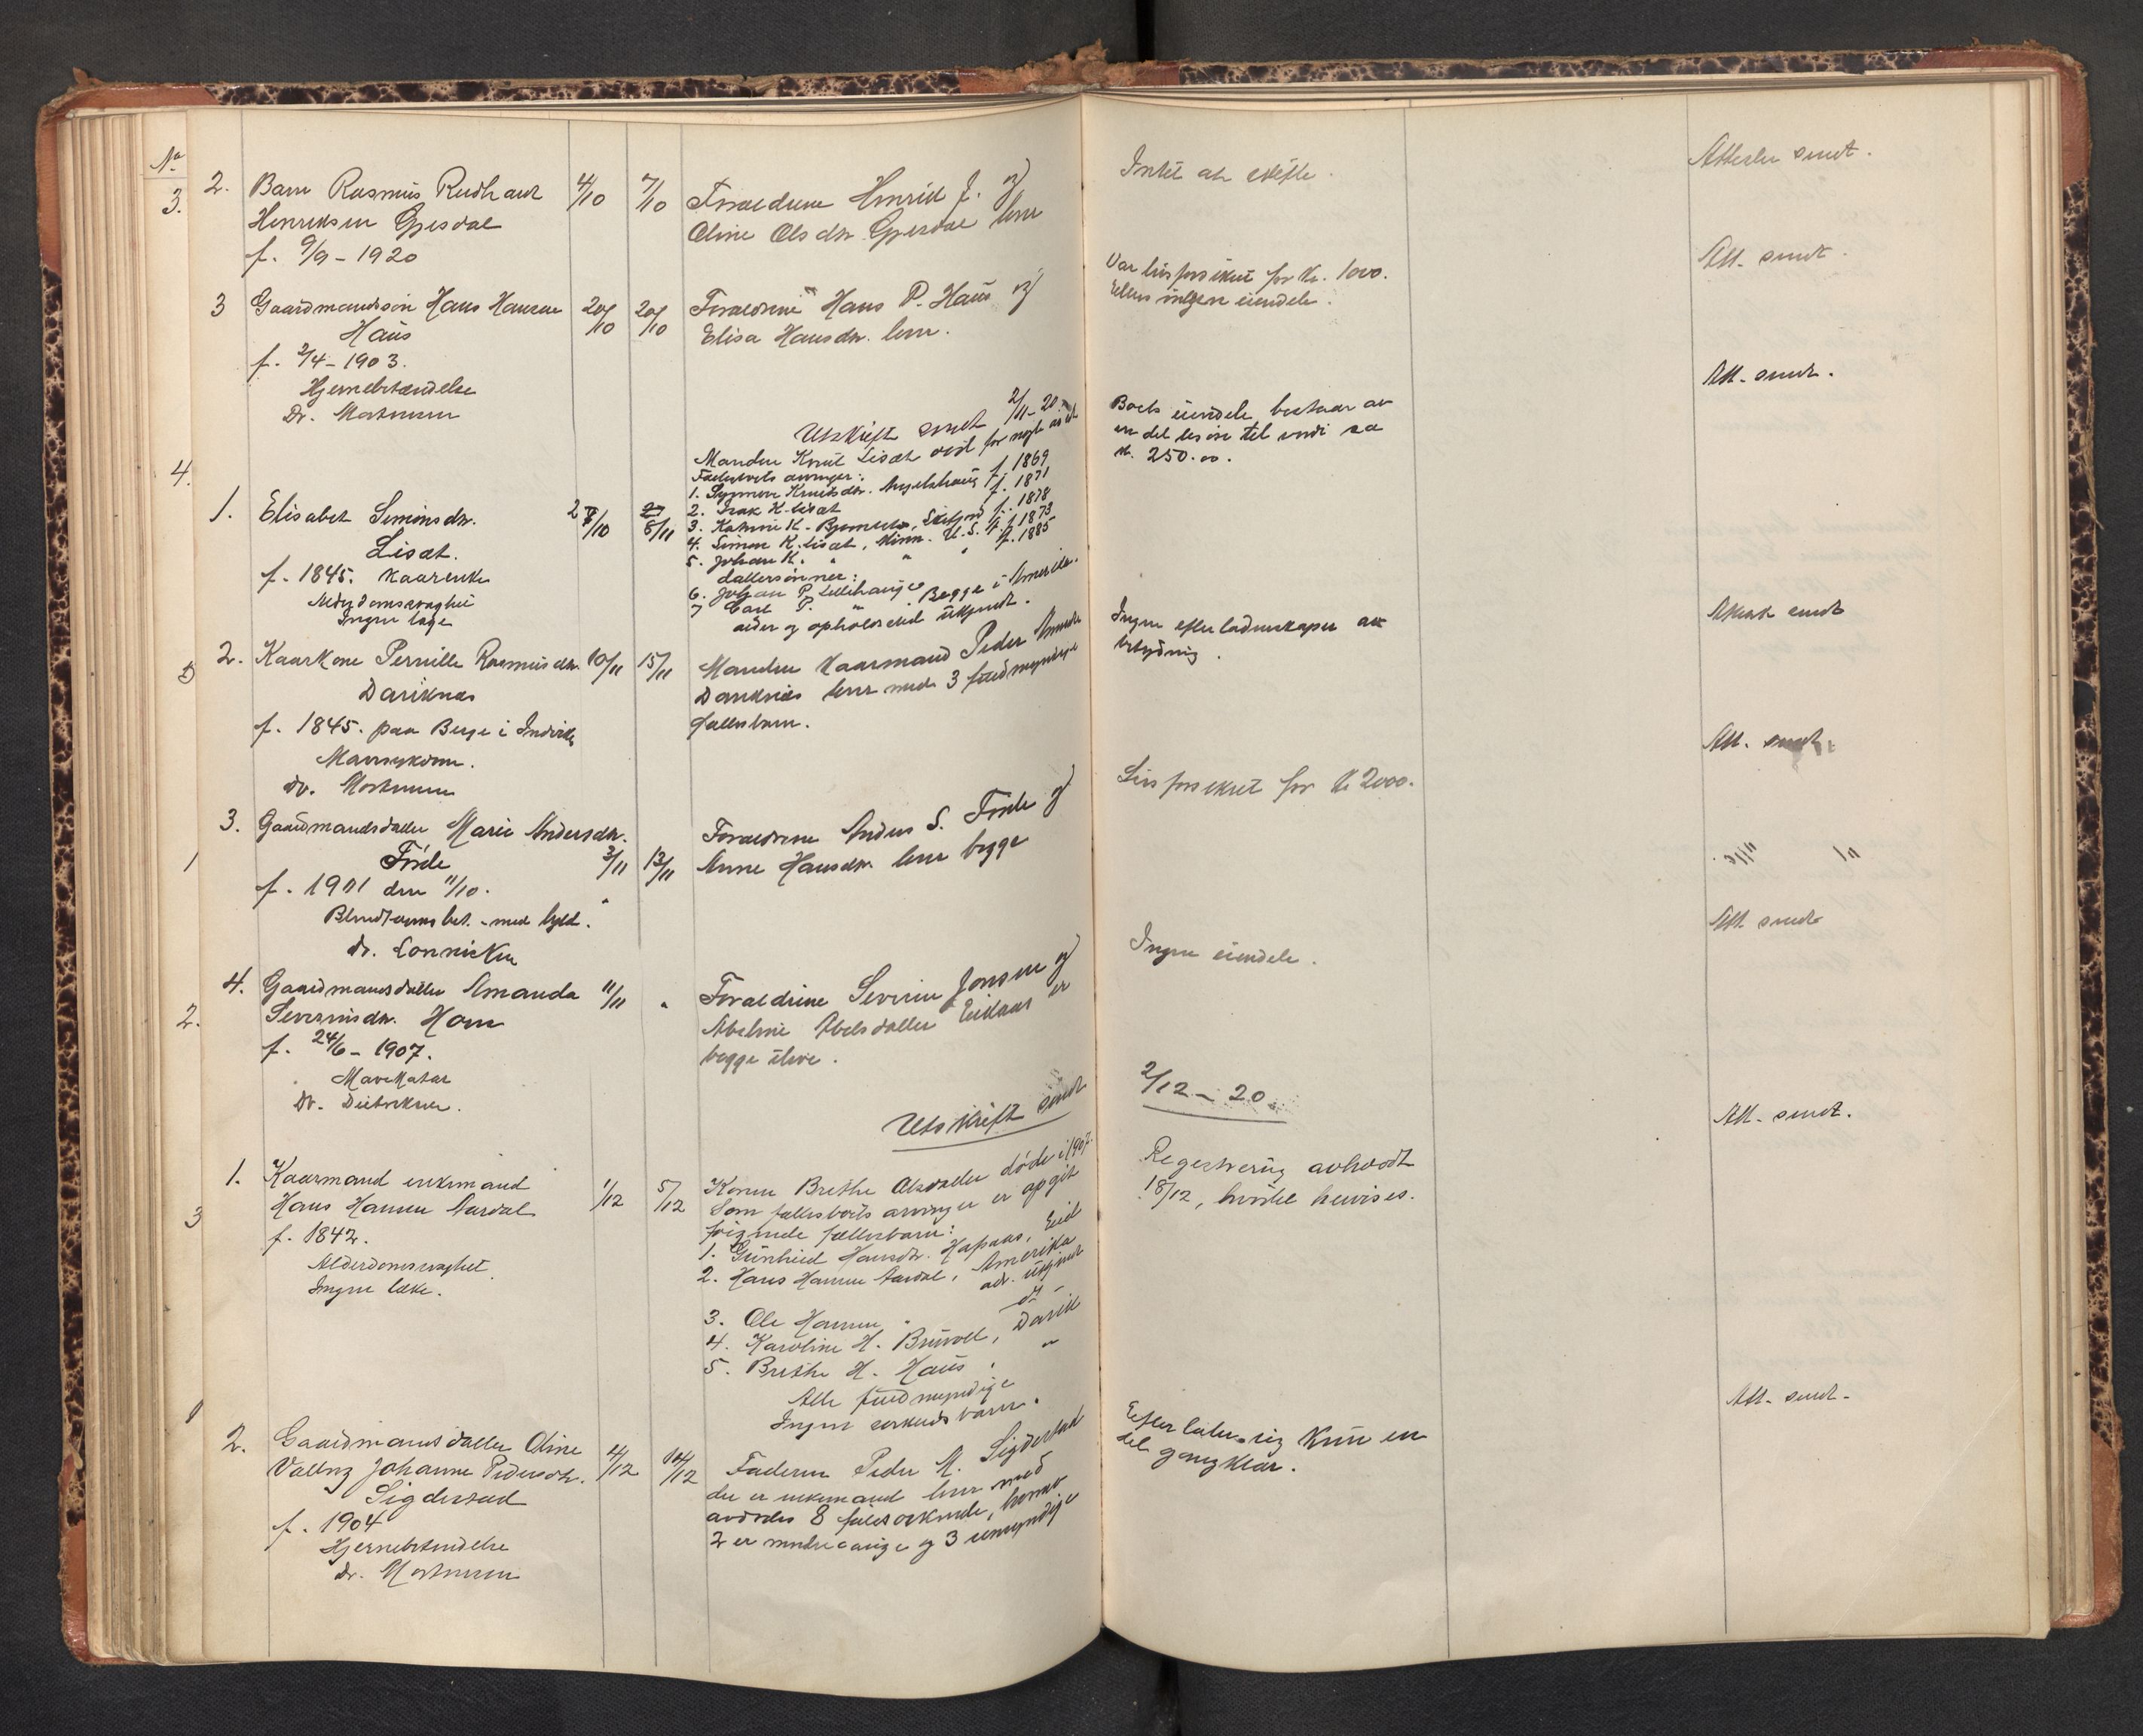 No
3.
2. Barn Rasmus
Henriksen Gjesdal
f. 9/9 - 1920
4/10
7/10
Forældrene Henrik J. og
Oline Olsdtr. Gjesdal lever
Intet at skifte.
Attester sendt.
3 Gaardmandssøn Hans Hansen
Haus
f. 2/4 - 1903.
Hjernebetændelse
Dr. Mortensen
20/10
20/10
Forældrene Hans P. Haus og
Elisa Hansdtr. lever.
Var livsforsikret for kr. 1000.
Ellers ingen eiendele.
Att. sendt.
Utskrift sendt 2/11 - 20.
4.
1. Elisabet Simonsdtr.
Lisæt.
f. 1845. Kaarenke
Alderdomssvaghet
Ingen læge
8/11
Manden Knut Lisæt død for
Fællesboets arvinger:
1. Knutsdtr. f. 1869
2. Isak K. Lisæt f. 1871
3. K. f. 1878
4. Simon K. Lisæt, Minn. U.S. f. 1873
5. Johan K. " " " f. 1885
dattersønner:
6. Johan P.
7 Carl P. " Begge i Amerika.
alder og opholdssted ukjendt.
Boets eiendele bestaar av
en del løsøre til verdi ca
kr. 250.00.
Att. sendt.
2. Kaarkone Pernille Rasmusdtr.
Daviknæs
f. 1845. paa Berge i Indvik
Mavesykdom.
dr. Mortensen
10/11
15/11
Manden Kaarmand Peder
Daviknæs lever med 3 fuldmyndige
fællesbarn.
Ingen efterladenskaper av
betydning.
Attest sendt
3. Gaardmandsdatter Marie Andersdtr.
Førde
f. 1901 den 11/10.
Blindtarmsbet. med byld.
dr. Lonnicken
1
3/11
13/11
Forældrene Anders S. Førde og
Anne Hansdtr. lever begge
Livsforsikret for kr 2000.
Att. sendt.
4. Gaardmandsdatter Amanda
Severinsdtr. Hom
f. 24/6 - 1907.
Mavekatar
Dr. Diedrichsen.
2.
11/11
"
Forældrene Severin Jonsen og
Abeline Abelsdatter Eikaas er
begge ilive.
Ingen eiendele.
Att. sendt
Utskrift sendt 2/12 - 20.
1. Kaarmand enkemand
Hans Hansen Aardal
f. 1842.
Alderdomssvaghet.
Ingen læke.
3
1/12
5/12
Konen Brethe Olsdatter døde i 1907.
Som fællesboets arvinger er opgit
følgende fællesbarn:
1. Gunhild Hansdtr. Hapaas, Eid
2. Hans Hansen Aardal, Amerika
adr. ukjendt
3. Ole Hansen " do -
4. Karoline H. Bruvoll, Davik
5. Brethe H. Haus, "
Alle fuldmyndige
Ingen særkuldsbarn.
Registrering avholdt
18/12, hvortil henvises.
Att. sendt.
2. Gaardmandsdatter Oline
Valborg Johanne Pedersdtr.
Sigdestad
f. 1904
Hjernebetændelse
dr. Mortensen
4/12
14/12
Faderen Peder M. Sigdestad
der er enkemand lever med
avdødes 8 helsøskende, hvorav
2 er mindreaarige og 3 umyndige
Efterlater sig kun en
del gangklær.
Att. sendt.